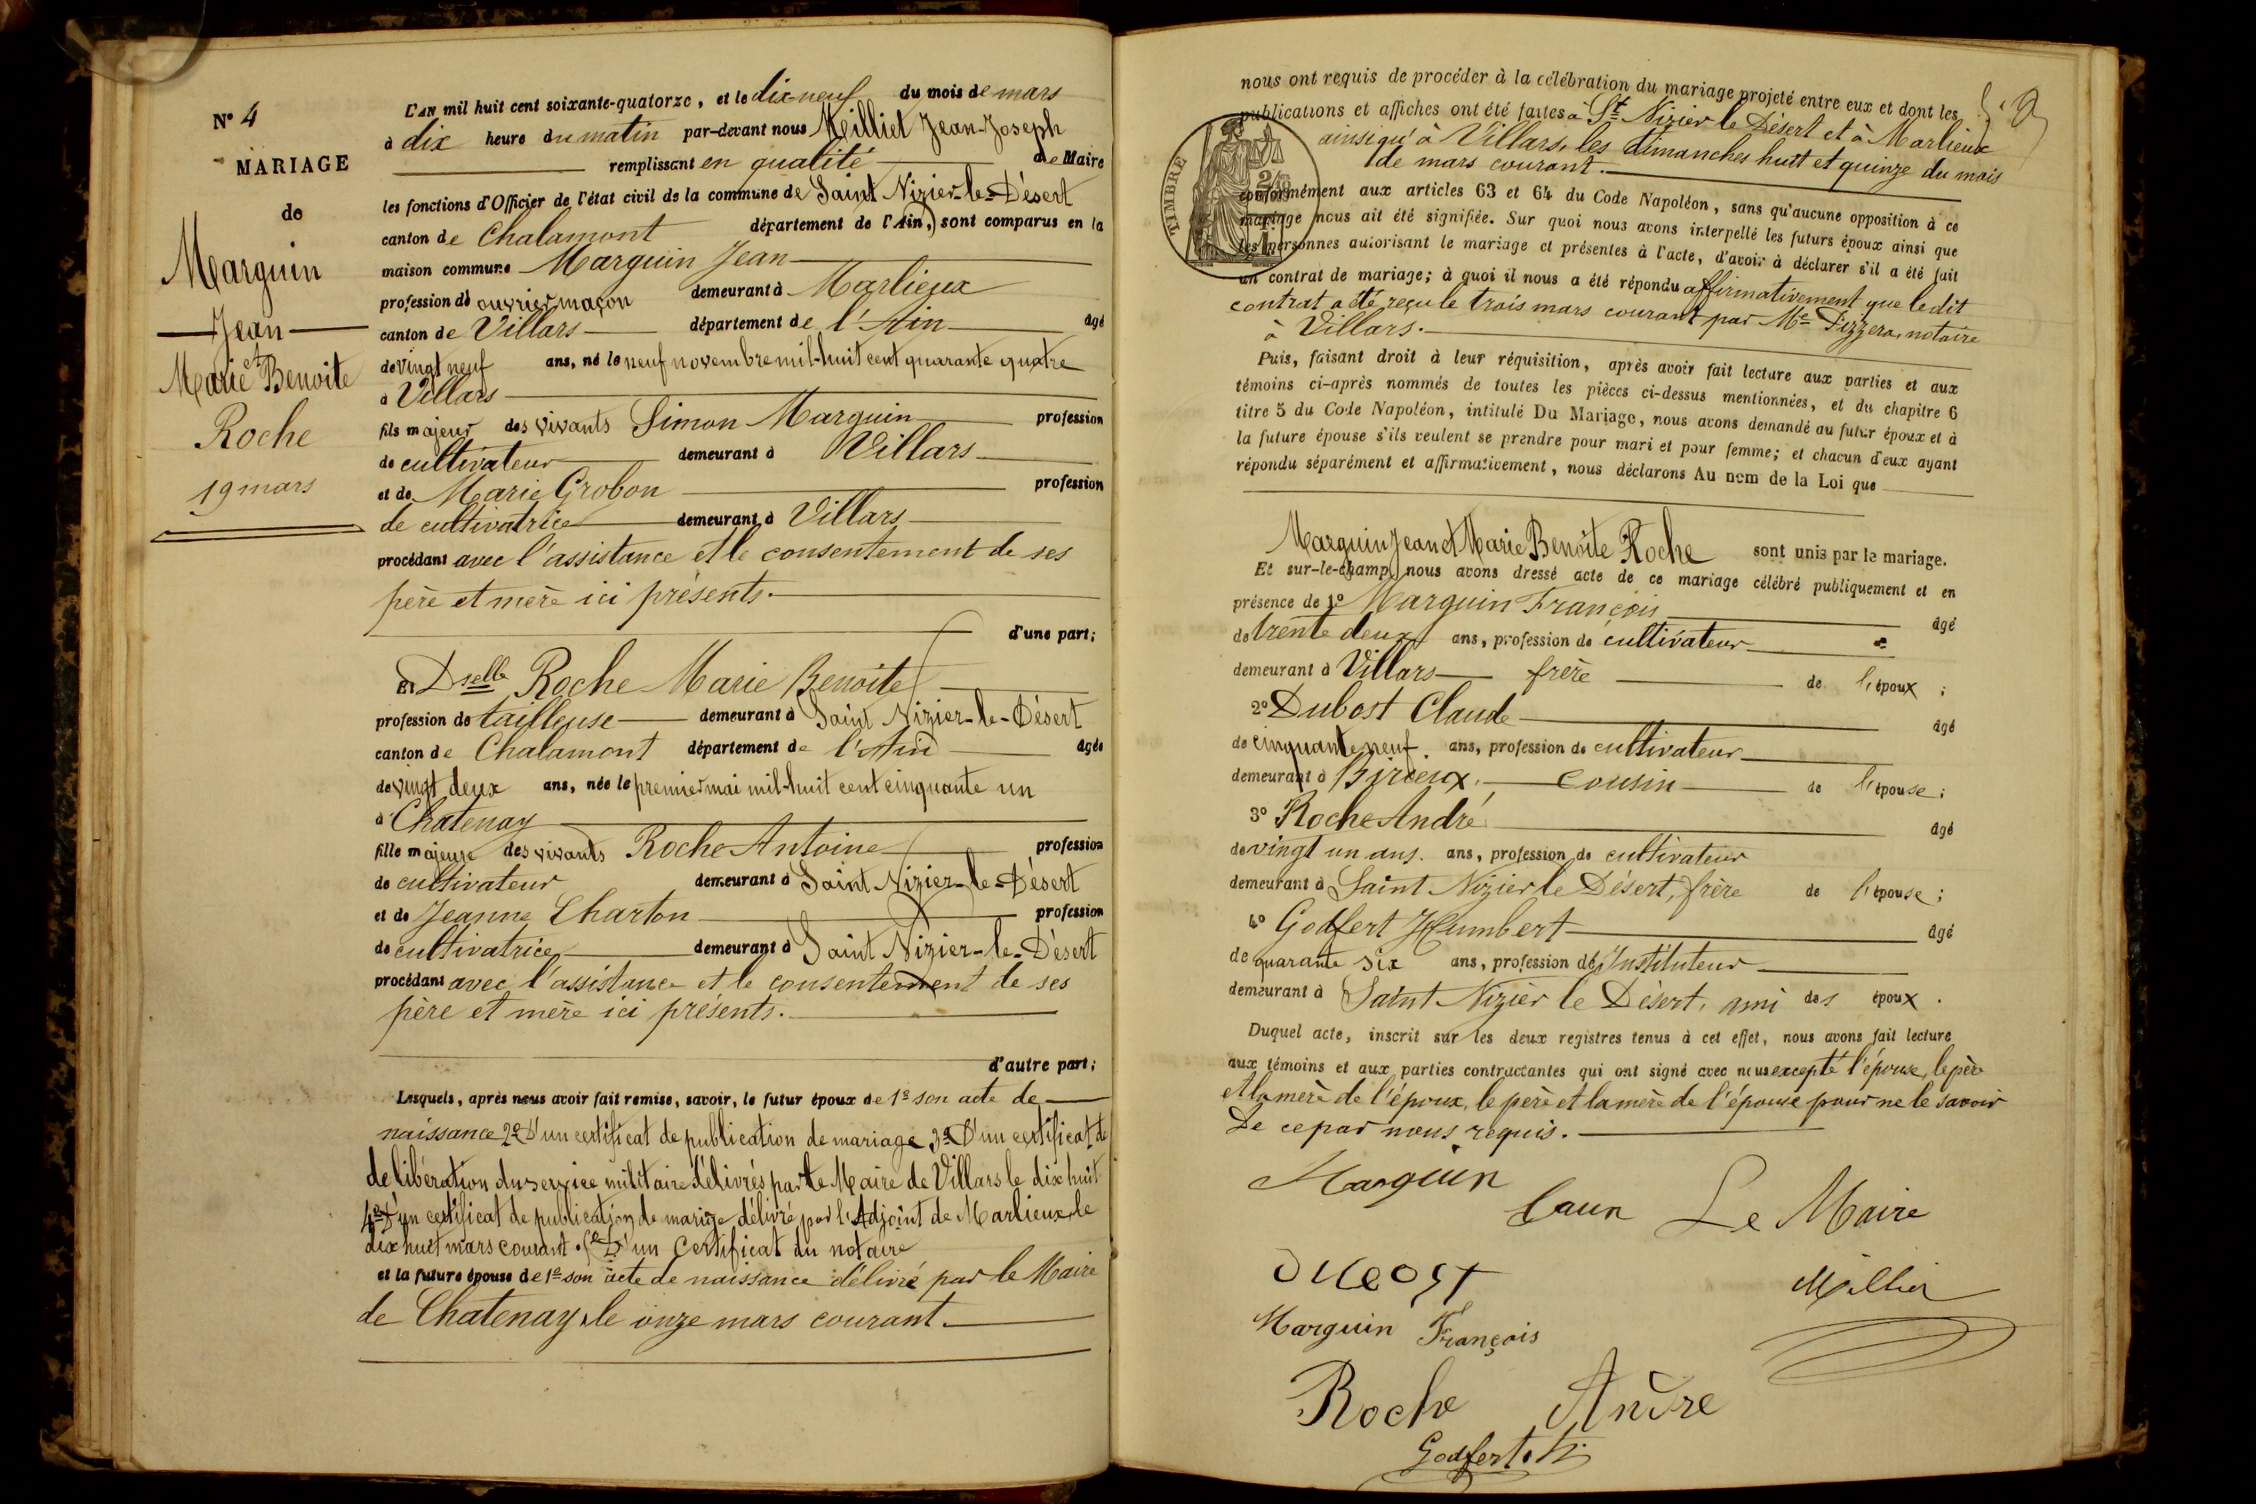 N° 4
MARIAGE
de
Marguin
Jean
et
Marie Benoite
Roche
19 mars
L'AN mil huit cent soixante-quatorze, et le dix-neuf du mois de mars
à dix heure du matin par-devant nous Milliet Jean-Joseph
remplissant en qualité de Maire
les fonctions d'Officier de l'état civil de la commune de Saint Nizier-le-Désert
canton de Chalamont département de l'Ain, sont comparus en la
maison commune Marguin Jean
profession de ouvrier maçon demeurant à Marlieux
canton de Villars département de l'Ain âgé
de vingt neuf ans, né le neuf novembre mil-huit cent quarante quatre
à Villars
fils majeur des vivants Simon Marguin profession
de cultivateur demeurant à Villars
et de Marie Grobon profession
de cultivatrice demeurant à Villars
procédant avec l'assistance et le consentement de ses
père et mère ici présents.
d'une part;
Et Dselle Roche Marie Benoite
profession de tailleuse demeurant à Saint Nizier-le-Désert
canton de Chalamont département de l'Ain âgée
de vingt deux ans, née le premier mai mil-huit cent cinquante un
à Chatenay
fille majeure des vivants Roche Antoine profession
de cultivateur demeurant à Saint Nizier-le-Désert
et de Jeanne Charton profession
de cultivatrice demeurant à Saint Nizier-le-Désert
procédant avec l'assistance et le consentement de ses
père et mère ici présents.
d'autre part;
Lesquels, après nous avoir fait remise, savoir, le futur époux de 1° son acte de
naissance 2° D'un certificat de publication de mariage 3° D'un certificat de
de libération du service militaire délivrés par le Maire de Villars le dix huit
4° D'un certificat de publication de mariage délivré par l'Adjoint de Marlieux, le
dix huit mars courant. 5° D'un Certificat du notaire
et la future épouse de 1° son acte de naissance délivré par le Maire
de Chatenay, le onze mars courant.
nous ont requis de procéder à la célébration du mariage projeté entre eux et dont les
publications et affiches ont été faites à St Nizier le Désert et à Marlieux
ainsi qu'à Villars, les dimanches huit et quinze du mois
de mars courant.
TIMBRE
conformément aux articles 63 et 64 du Code Napoléon, sans qu'aucune opposition à ce
mariage nous ait été signifiée. Sur quoi nous avons interpellé les futurs époux ainsi que
les personnes autorisant le mariage et présentes à l'acte, d'avoir à déclarer s'il a été fait
un contrat de mariage; à quoi il nous a été répondu affirmativement que le dit
contrat a été reçu le trois mars courant par Me notaire
à Villars.
Puis, faisant droit à leur réquisition, après avoir fait lecture aux parties et aux
témoins ci-après nommés de toutes les pièces ci-dessus mentionnées, et du chapitre 6
titre 5 du Code Napoléon, intitulé Du Mariage, nous avons demandé au futur époux et à
la future épouse s'ils veulent se prendre pour mari et pour femme; et chacun d'eux ayant
répondu séparément et affirmativement, nous déclarons Au nom de la Loi que
Marguin Jean et Marie Benoite Roche sont unis par le mariage.
Et sur-le-champ, nous avons dressé acte de ce mariage célébré publiquement et en
présence de 1° Marguin François âgé
de trente deux ans, profession de cultivateur
demeurant à Villars frère de l'époux;
2° Dubost Claude âgé
de cinquante neuf. ans, profession de cultivateur
demeurant à Birieux. cousin de l'épouse;
3° Roche André âgé
de vingt un ans. ans, profession de cultivateur
demeurant à Saint Nizier le Désert, frère de l'épouse;
4° Godfert Humbert âgé
de quarante six ans, profession de Instituteur
demeurant à Saint Nizier le Désert, ami des époux.
Duquel acte, inscrit sur les deux registres tenus à cet effet, nous avons fait lecture
aux témoins et aux parties contractantes qui ont signé avec nous excepté l'épouse, le père
et la mère de l'époux, le père et la mère de l'épouse pour ne le savoir
De ce par nous requis.
Marguin
Le Maire
Dubost
Milliet
Marguin François
Roche André
Godfert. h